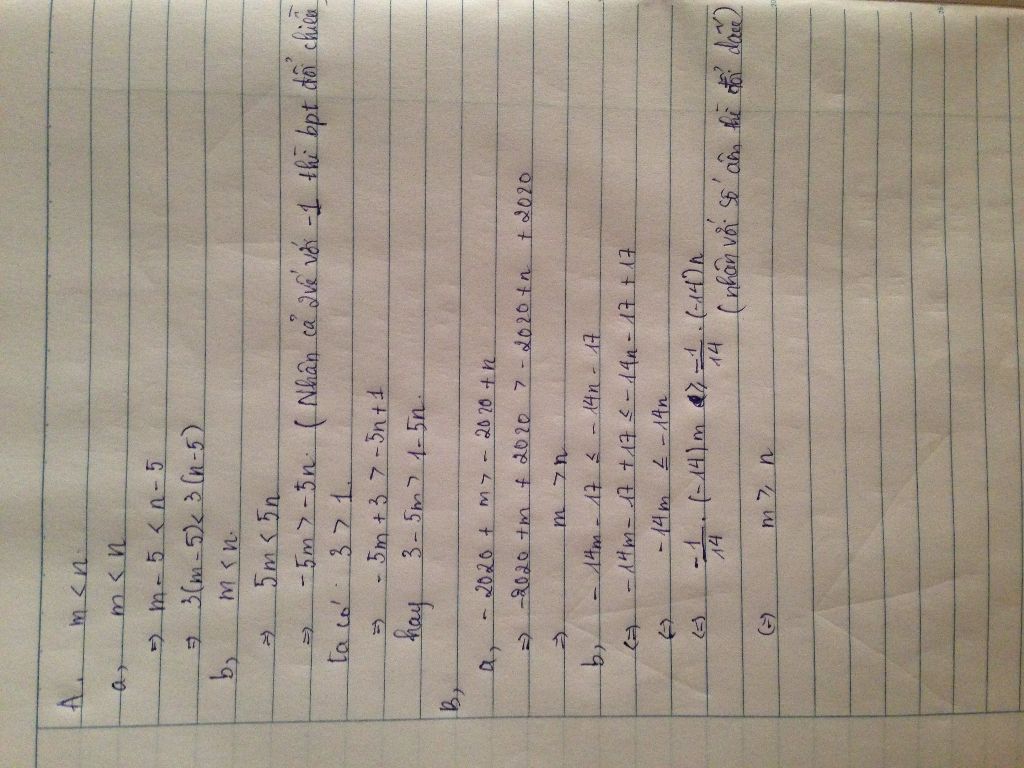 A. m < n.
a, m < n
⇒ m - 5 < n - 5
⇒ 3(m-5) < 3(n-5)
b, m < n.
⇒ 5m < 5n
⇒ -5m > -5n. (Nhân cả 2 vế với -1 thì bpt đổi chiều)
ta có: 3 > 1.
⇒ -5m + 3 > -5n + 1
hay 3 - 5m > 1 - 5n.
B,
a, -2020 + m > -2020 + n
⇒ -2020 + m + 2020 > -2020 + n + 2020
⇒ m > n
b, -14m - 17 ≤ -14n - 17
⇔ -14m - 17 + 17 ≤ -14n - 17 + 17
⇔ -14m ≤ -14n
⇔ -1/14 . (-14)m ≥ -1/14 . (-14)n
(nhân với số âm thì đổi dấu)
⇔ m ≥ n